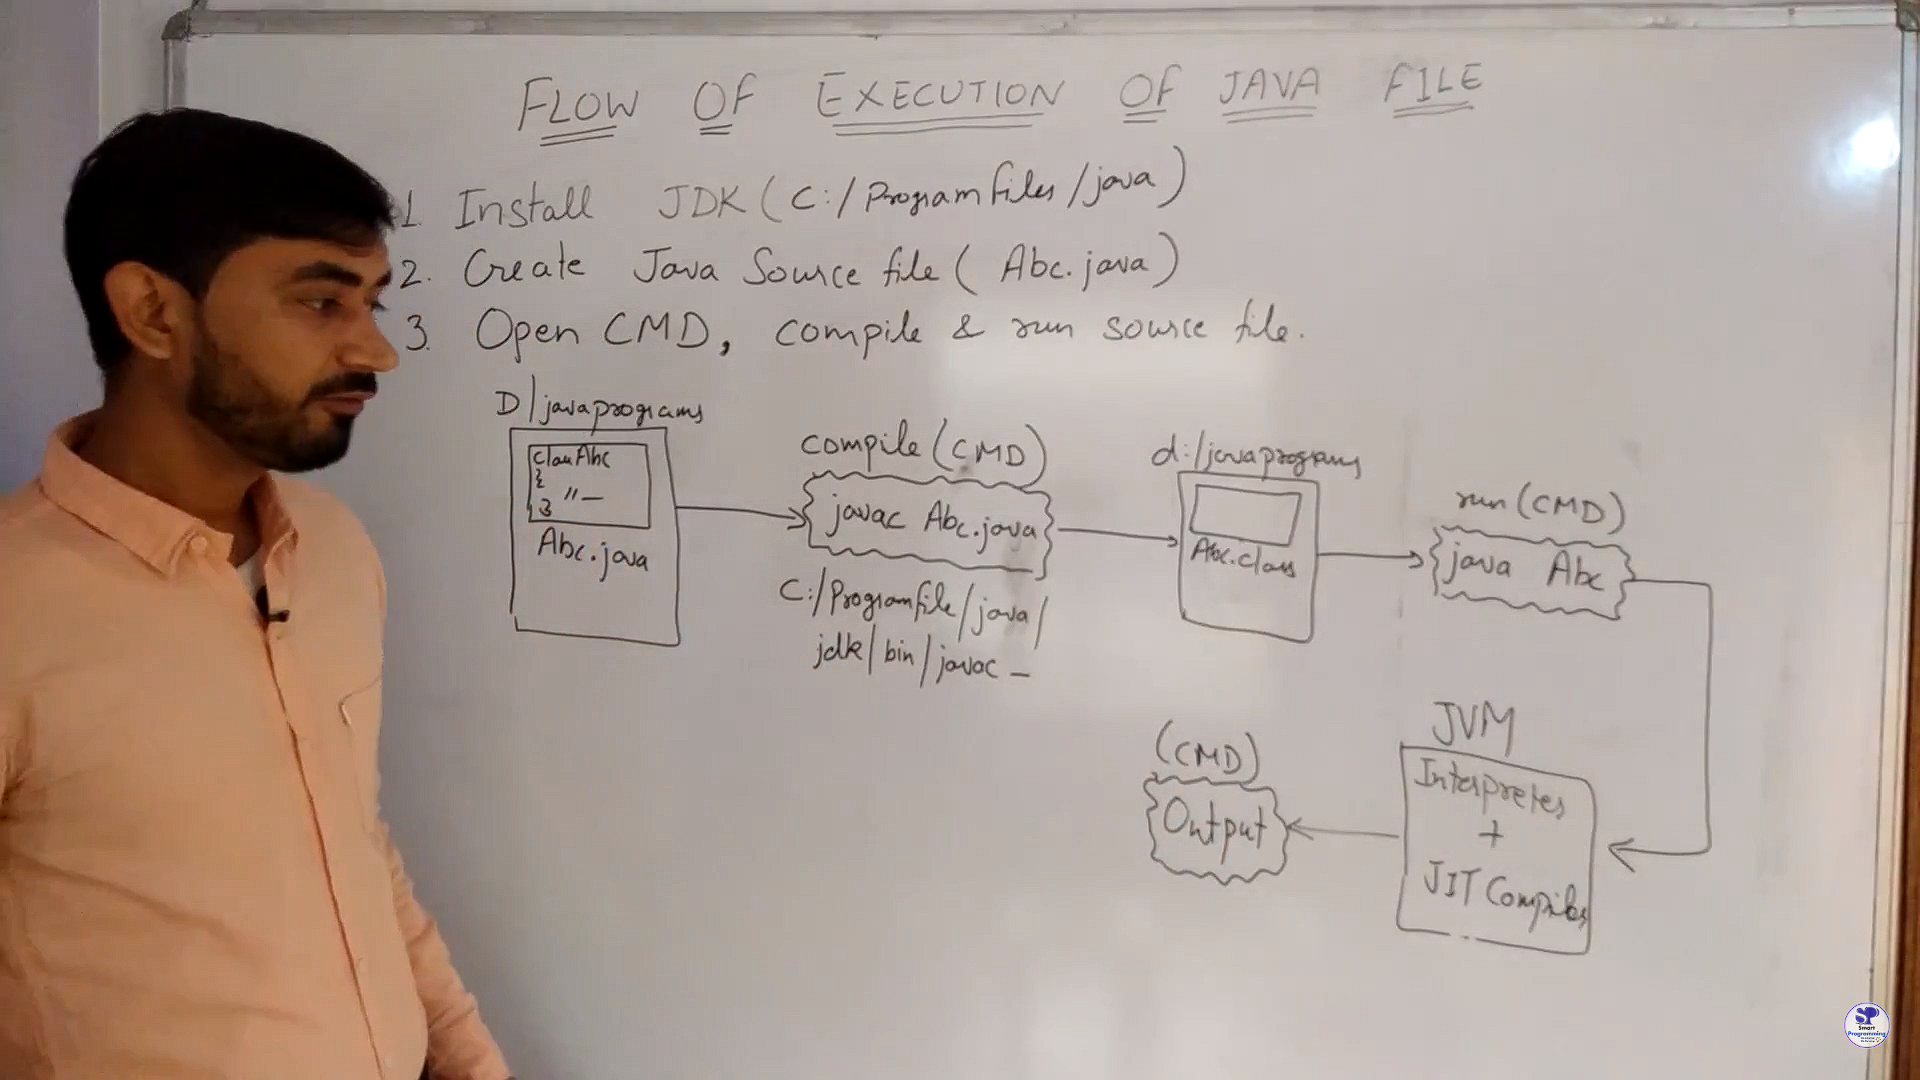 FLOW OF EXECUTION OF JAVA FILE
1. Install JDK (C:/Program files/java)
2. Create Java Source file (Abc.java)
3. Open CMD, compile & run source file.
D/javaprograms
class Abc
{
" —
}
Abc.java
compile (CMD)
javac Abc.java
C:/Programfile/java/
jdk/bin/javac _
d:/javaprograms
Abc.class
run (CMD)
java Abc
JVM
Interpreter
+
JIT Compiler
(CMD)
Output
SP
Smart
Programming